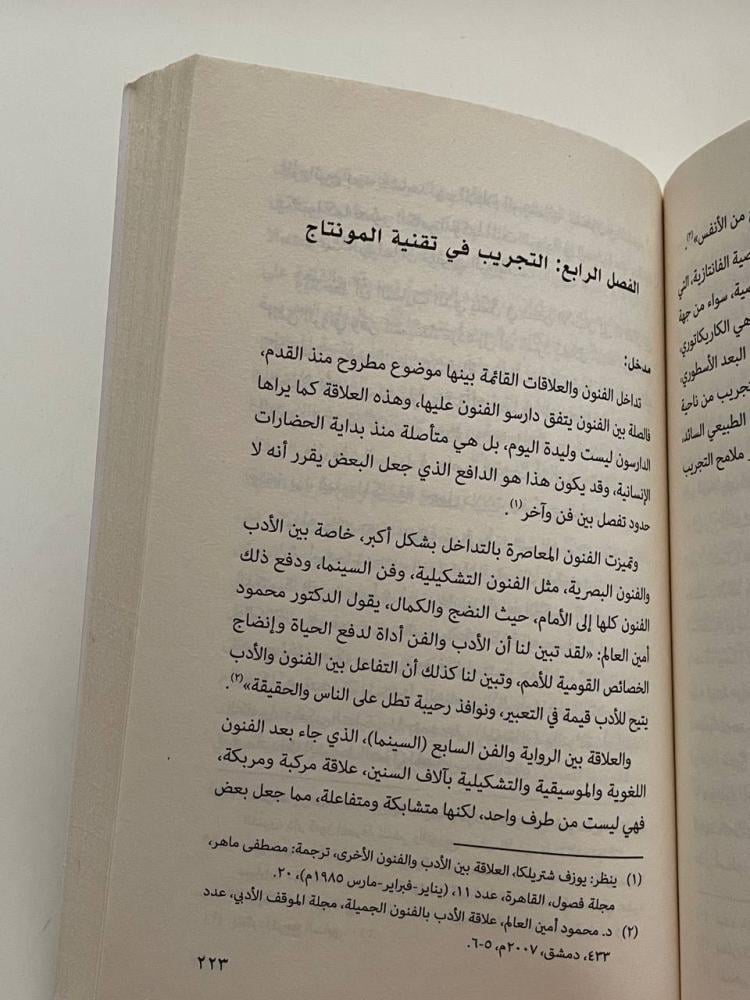 الفصل الرابع: التجريب في تقنية المونتاج
مدخل:
تداخل الفنون والعلاقات القائمة بينها موضوع مطروح منذ القدم،
فالصلة بين الفنون يتفق دارسو الفنون عليها، وهذه العلاقة كما يراها
الدارسون ليست وليدة اليوم، بل هي متأصلة منذ بداية الحضارات
الإنسانية، وقد يكون هذا هو الدافع الذي جعل البعض يقرر أنه لا
حدود تفصل بين فن وآخر(١).
وتميزت الفنون المعاصرة بالتداخل بشكل أكبر، خاصة بين الأدب
والفنون البصرية، مثل الفنون التشكيلية، وفن السينما، ودفع ذلك
الفنون كلها إلى الأمام، حيث النضج والكمال، يقول الدكتور محمود
أمين العالم: «لقد تبين لنا أن الأدب والفن أداة لدفع الحياة وإنضاج
الخصائص القومية للأمم، وتبين لنا كذلك أن التفاعل بين الفنون والأدب
يتيح للأدب قيمة في التعبير، ونوافذ رحيبة تطل على الناس والحقيقة»(٢).
والعلاقة بين الرواية والفن السابع (السينما)، الذي جاء بعد الفنون
اللغوية والموسيقية والتشكيلية بآلاف السنين، علاقة مركبة ومربكة،
فهي ليست من طرف واحد، لكنها متشابكة ومتفاعلة، مما جعل بعض
(١) ينظر: يوزف شتريلكا، العلاقة بين الأدب والفنون الأخرى، ترجمة: مصطفى ماهر،
مجلة فصول، القاهرة، عدد ١١، (يناير-فبراير-مارس ١٩٨٥م)، ٢٠.
(٢) د. محمود أمين العالم، علاقة الأدب بالفنون الجميلة، مجلة الموقف الأدبي، عدد
٤٣٣، دمشق، ٢٠٠٧م، ٥-٦.
٢٢٣
من الأنفس»(٢).
الفانتازية، التي
سواء من جهة
هي الكاريكاتوري،
البعد الأسطوري،
تجريب من ناحية
الطبيعي السائد،
ملامح التجريب